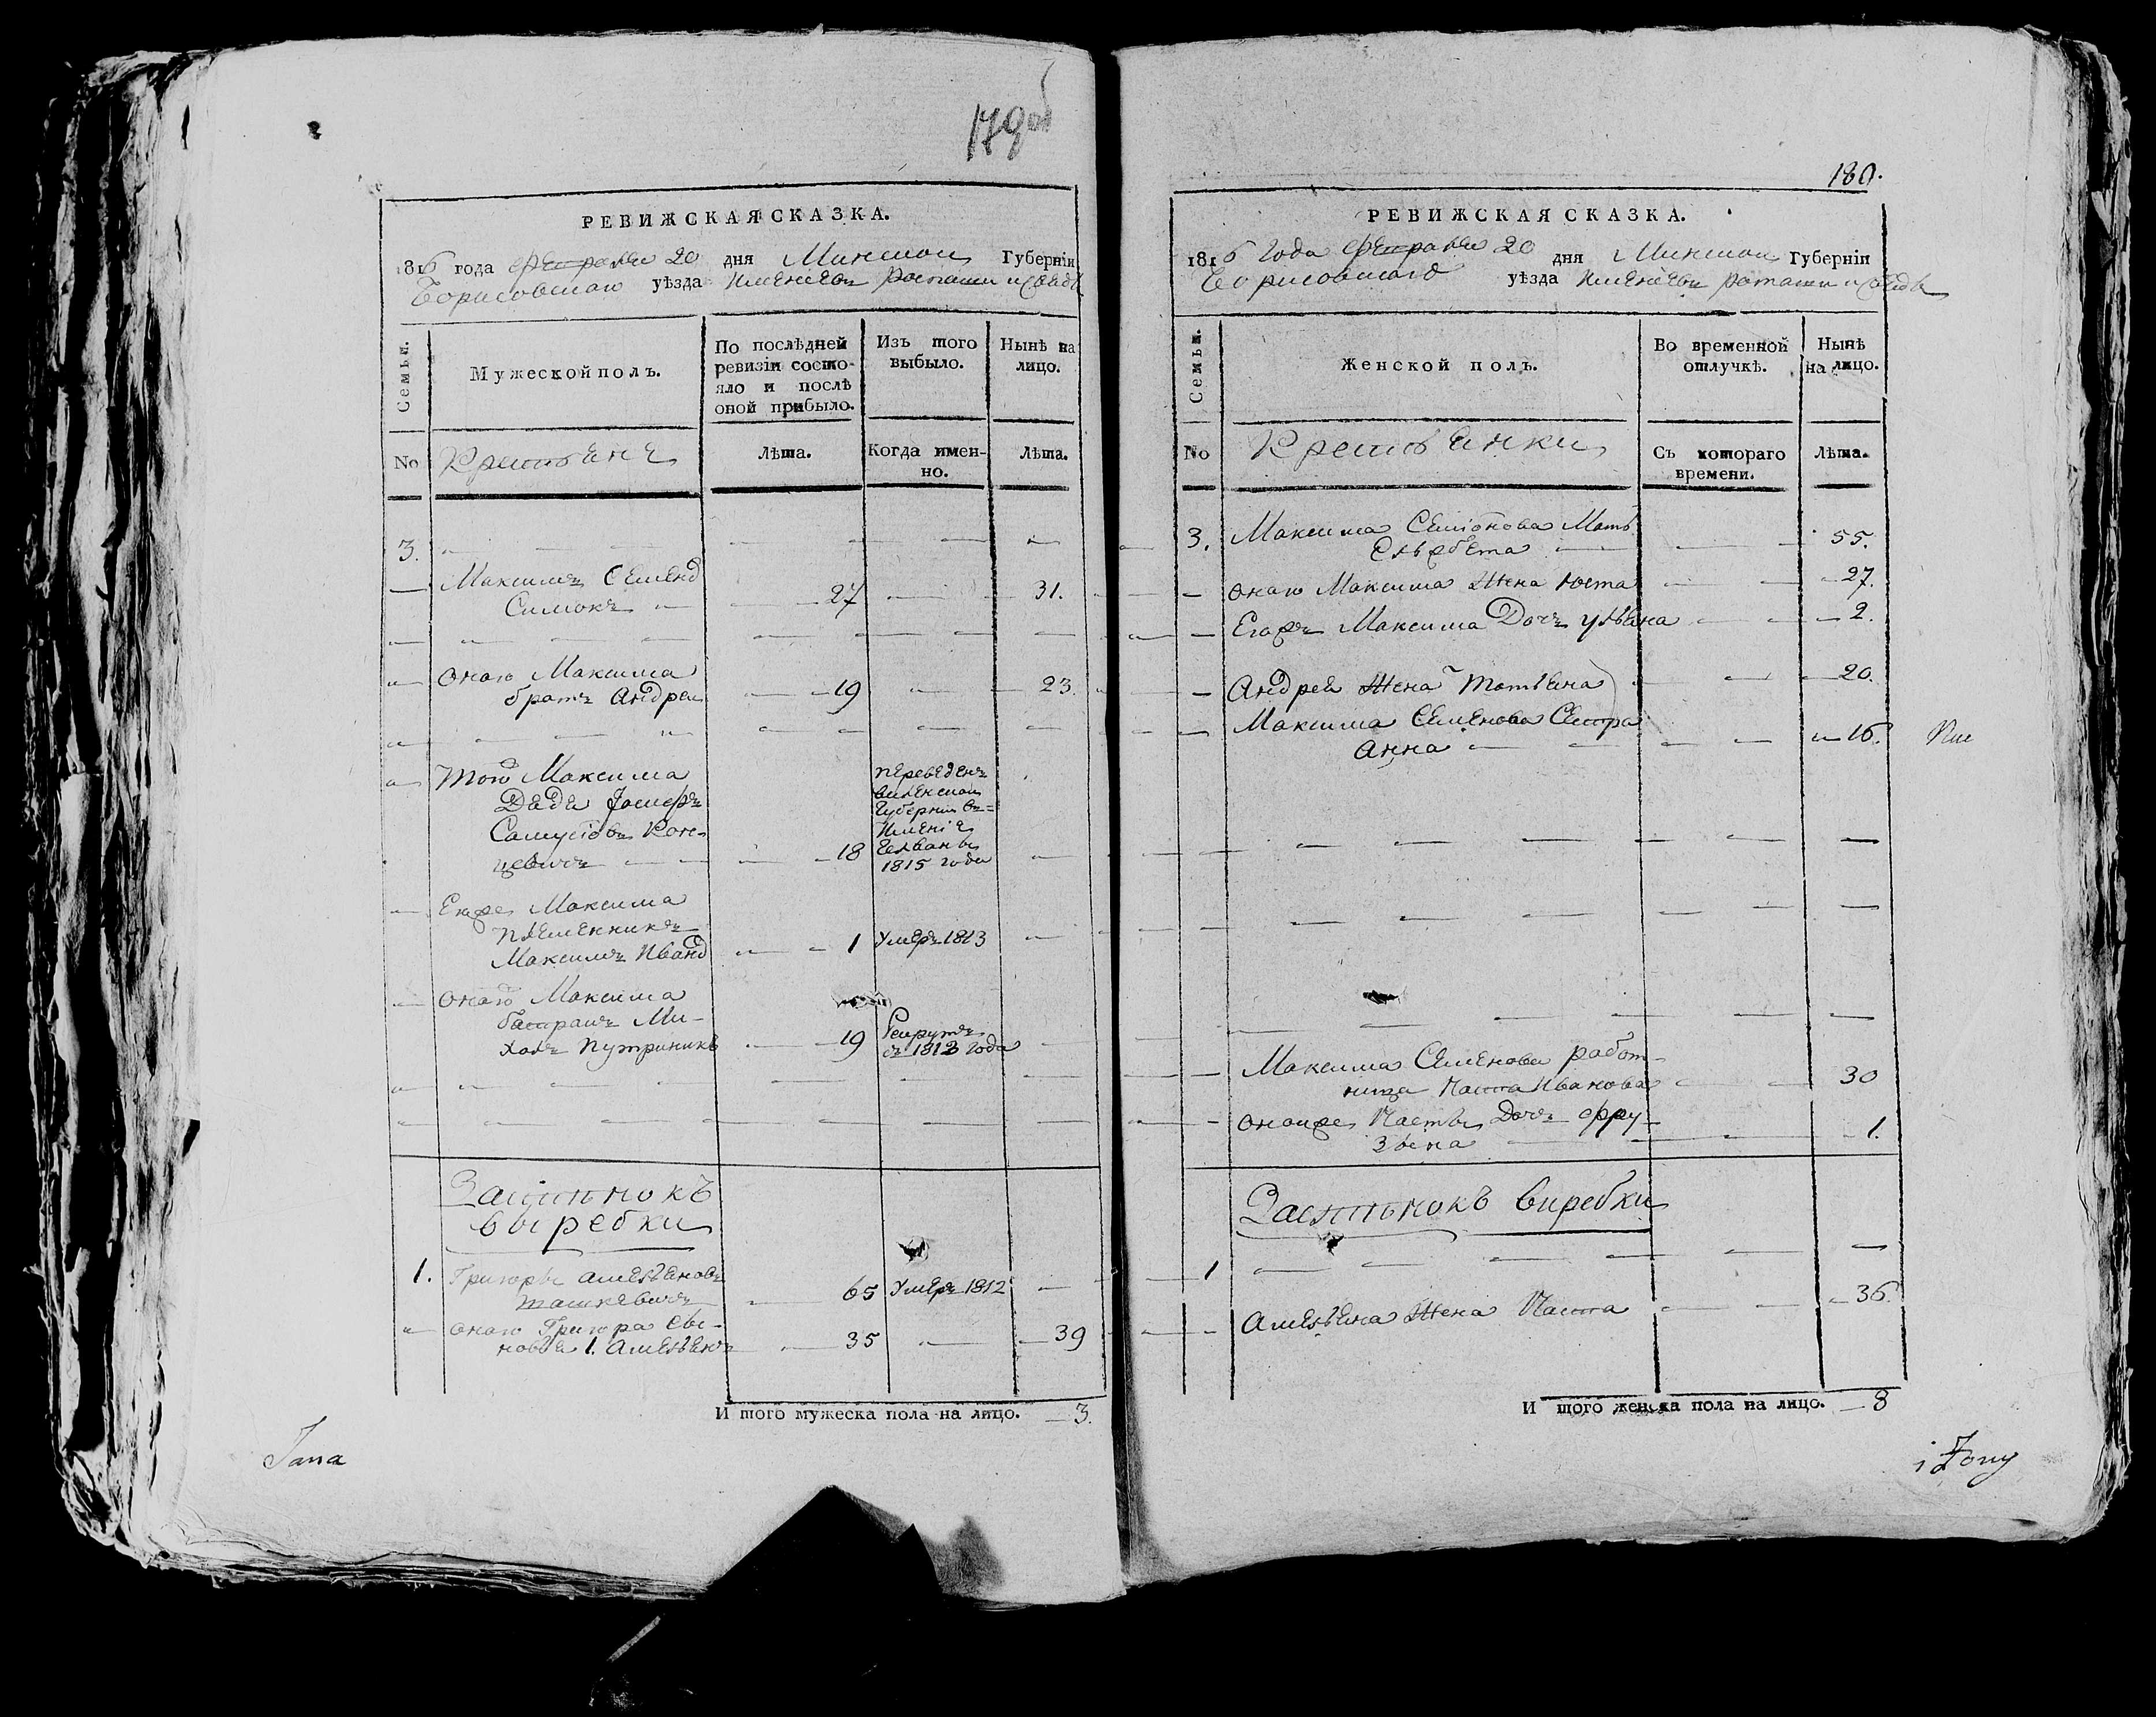 179об
РЕВИЖСКАЯ СКАЗКА.
1816 года февраля 20 дня Минской Губерніи
Борисовскаго уѣзда
Семьи.
Мужеской полъ.
По послѣдней ревизіи состо-
яло и послѣ
оной прибыло.
Изъ того
выбыло.
Нынѣ на
лицо.
No
Крестьяне
Лѣта.
Когда имен-
но.
Лѣта.
3.
Максимъ Семенов
Симокъ 27 31.
онаго Максима
братъ Андрей 19 23.
того Максима
Дядя
18
переведенъ
виленской
Губерніи въ
Имѣніе
1815 года
Егоже Максима
племенникъ
Максимъ Иванов 1 Умеръ 1813
онаго Максима
батракъ Ми-
19 Рекрутъ
съ 1813 года
Застѣнокъ
выребки
1. Григорей
Ташкевичъ 65 Умеръ 1812
онаго Григора сы-
новья 1. 35 39
И того мужеска пола на лицо. 3.
Jana
180.
РЕВИЖСКАЯ СКАЗКА.
1816 года февраля 20 дня Минской Губерніи
Борисовскаго уѣзда
Семьи.
Женской полъ.
Во временной
отлучкѣ.
Нынѣ
на лицо.
No
Крестьянки
Съ котораго
времени.
Лѣта.
3. Максима Семіонова Мать
55.
онаго Максима Жена Юста 27.
Егожъ Максима Дочъ Ульяна 2.
Андрея Жена Татьяна 20.
Максима Семенова Сестра
Анна 16.
Максима Семенова работ-
ница Наста Иванова 30
онойже Насты Дочъ Фру-
зына 1.
Застѣнокъ виребки
1
Жена Наста 36.
И того женска пола на лицо. 8
i Żony